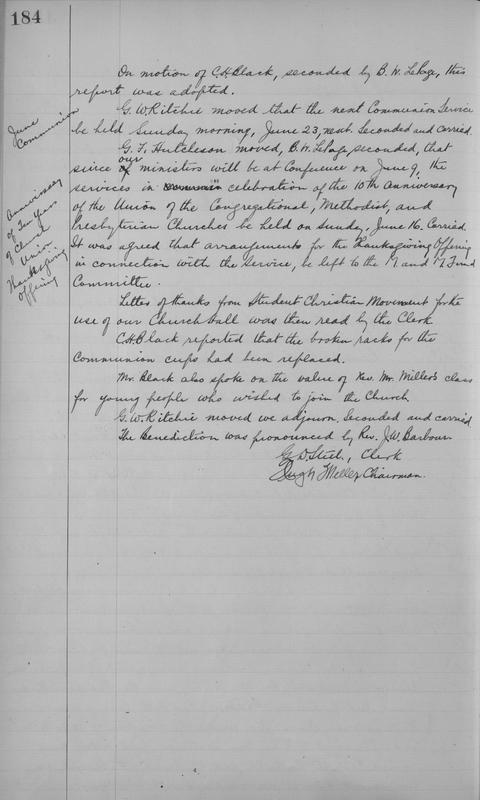 184
On motion of C.H. Black, seconded by B. W. LePage, this
report was adopted.
June
Communion
G. W. Ritchie moved that the next Communion Service
be held Sunday morning, June 23, next. Seconded and carried.
G. F. Hutcheson moved, B. W. LePage seconded, that
since our ministers will be at Conference on June 9, the
Anniversary
of Ten Years
of Church
Union
Thanksgiving
Offering
services in celebration of the 10th anniversary
of the Union of the Congregational, Methodist, and
Presbyterian Churches be held on Sunday, June 16. Carried.
It was agreed that arrangements for the Thanksgiving Offering
in connection with the Service, be left to the M and M Fund
Committee.
Letter of thanks from Student Christian Movement for the
use of our Church hall was then read by the Clerk.
C.H. Black reported that the broken racks for the
Communion cups had been replaced.
Mr. Black also spoke on the value of Rev. Mr. Miller's class
for young people who wished to join the Church.
G. W. Ritchie moved we adjourn. Seconded and carried.
The Benediction was pronounced by Rev. J. W. Barbour
G. D. Steel, Clerk
Hugh Miller Chairman.